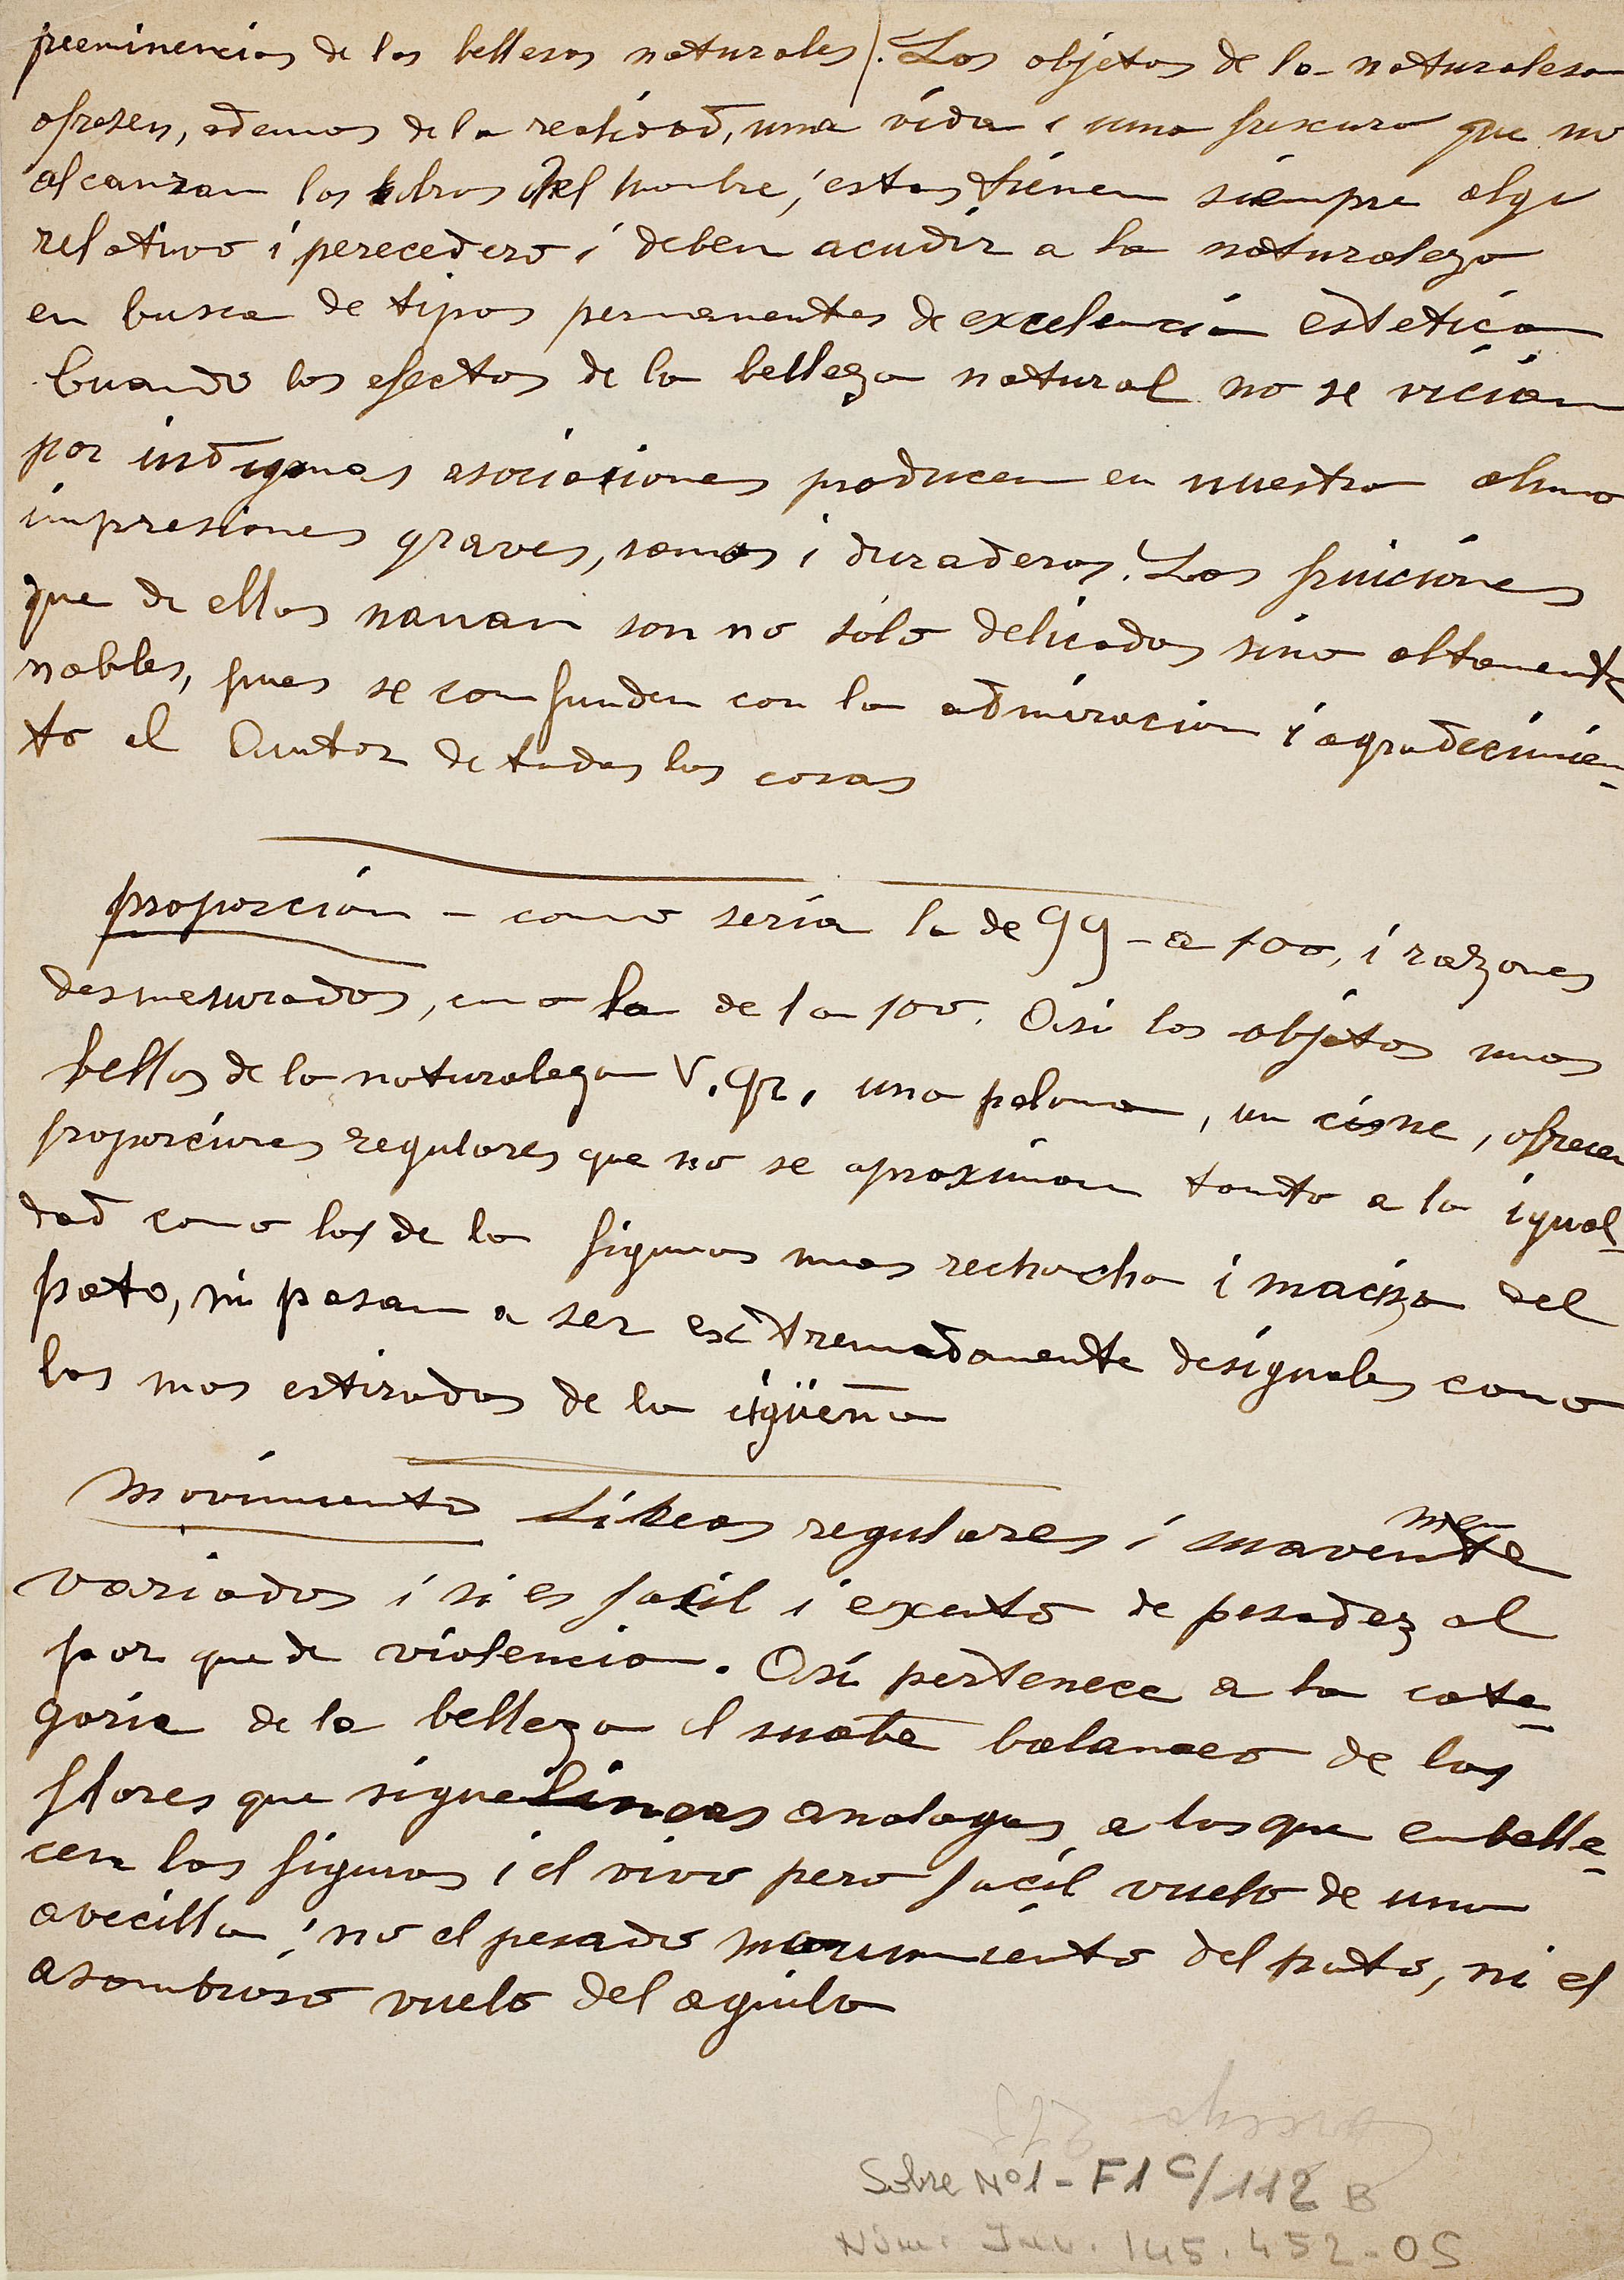 preeminencias de las bellesas naturales). Los objetos de la naturalesa
ofresen, ademas de la realidad, una vida i una frescura que no
alcanzan las obras del hombre; estas tienen siempre algo
relativo i perecedero i deben acudir a la naturaleza
en busca de tipos permanentes de excelencia estetica
Cuando los efectos de la belleza natural no se vician
por indignas asociaciones producen en nuestra alma
impresiones graves, sanas i duraderas. Las fruiciones
que de ellas manan son no sólo delicadas sino altamente
nobles, pues se confunden con la admiracion i agradecimien-
to al Autor de todas las cosas
proporción - como sería la de 99 - a 100, i razones
desmesuradas, como la de 1 a 100. Asi los objetos mas
bellos de la naturaleza V. gr. una paloma, un cisne, ofrecen
proporciones regulares que no se aproximan tanto a la igual-
dad como las de la figura mas rechoncha i maciza del
pato, ni pasan a ser extremadamente desiguales como
las mas estiradas de la cigüeña
Movimiento Líneas regulares i suavemente
variadas i si es facil i exento de pesadez al
par que de violencia. Asi pertenece a la cate-
goria de la belleza el suave balanceo de las
flores que sigue lineas analogas a las que embelle-
cen las figuras i el vivo pero facil vuelo de una
avecilla; no el pesado movimiento del pato, ni el
asombroso vuelo del aguila
Sobre Nº1 - F1 C/112 B
Núm. Inv. 145.452-OS